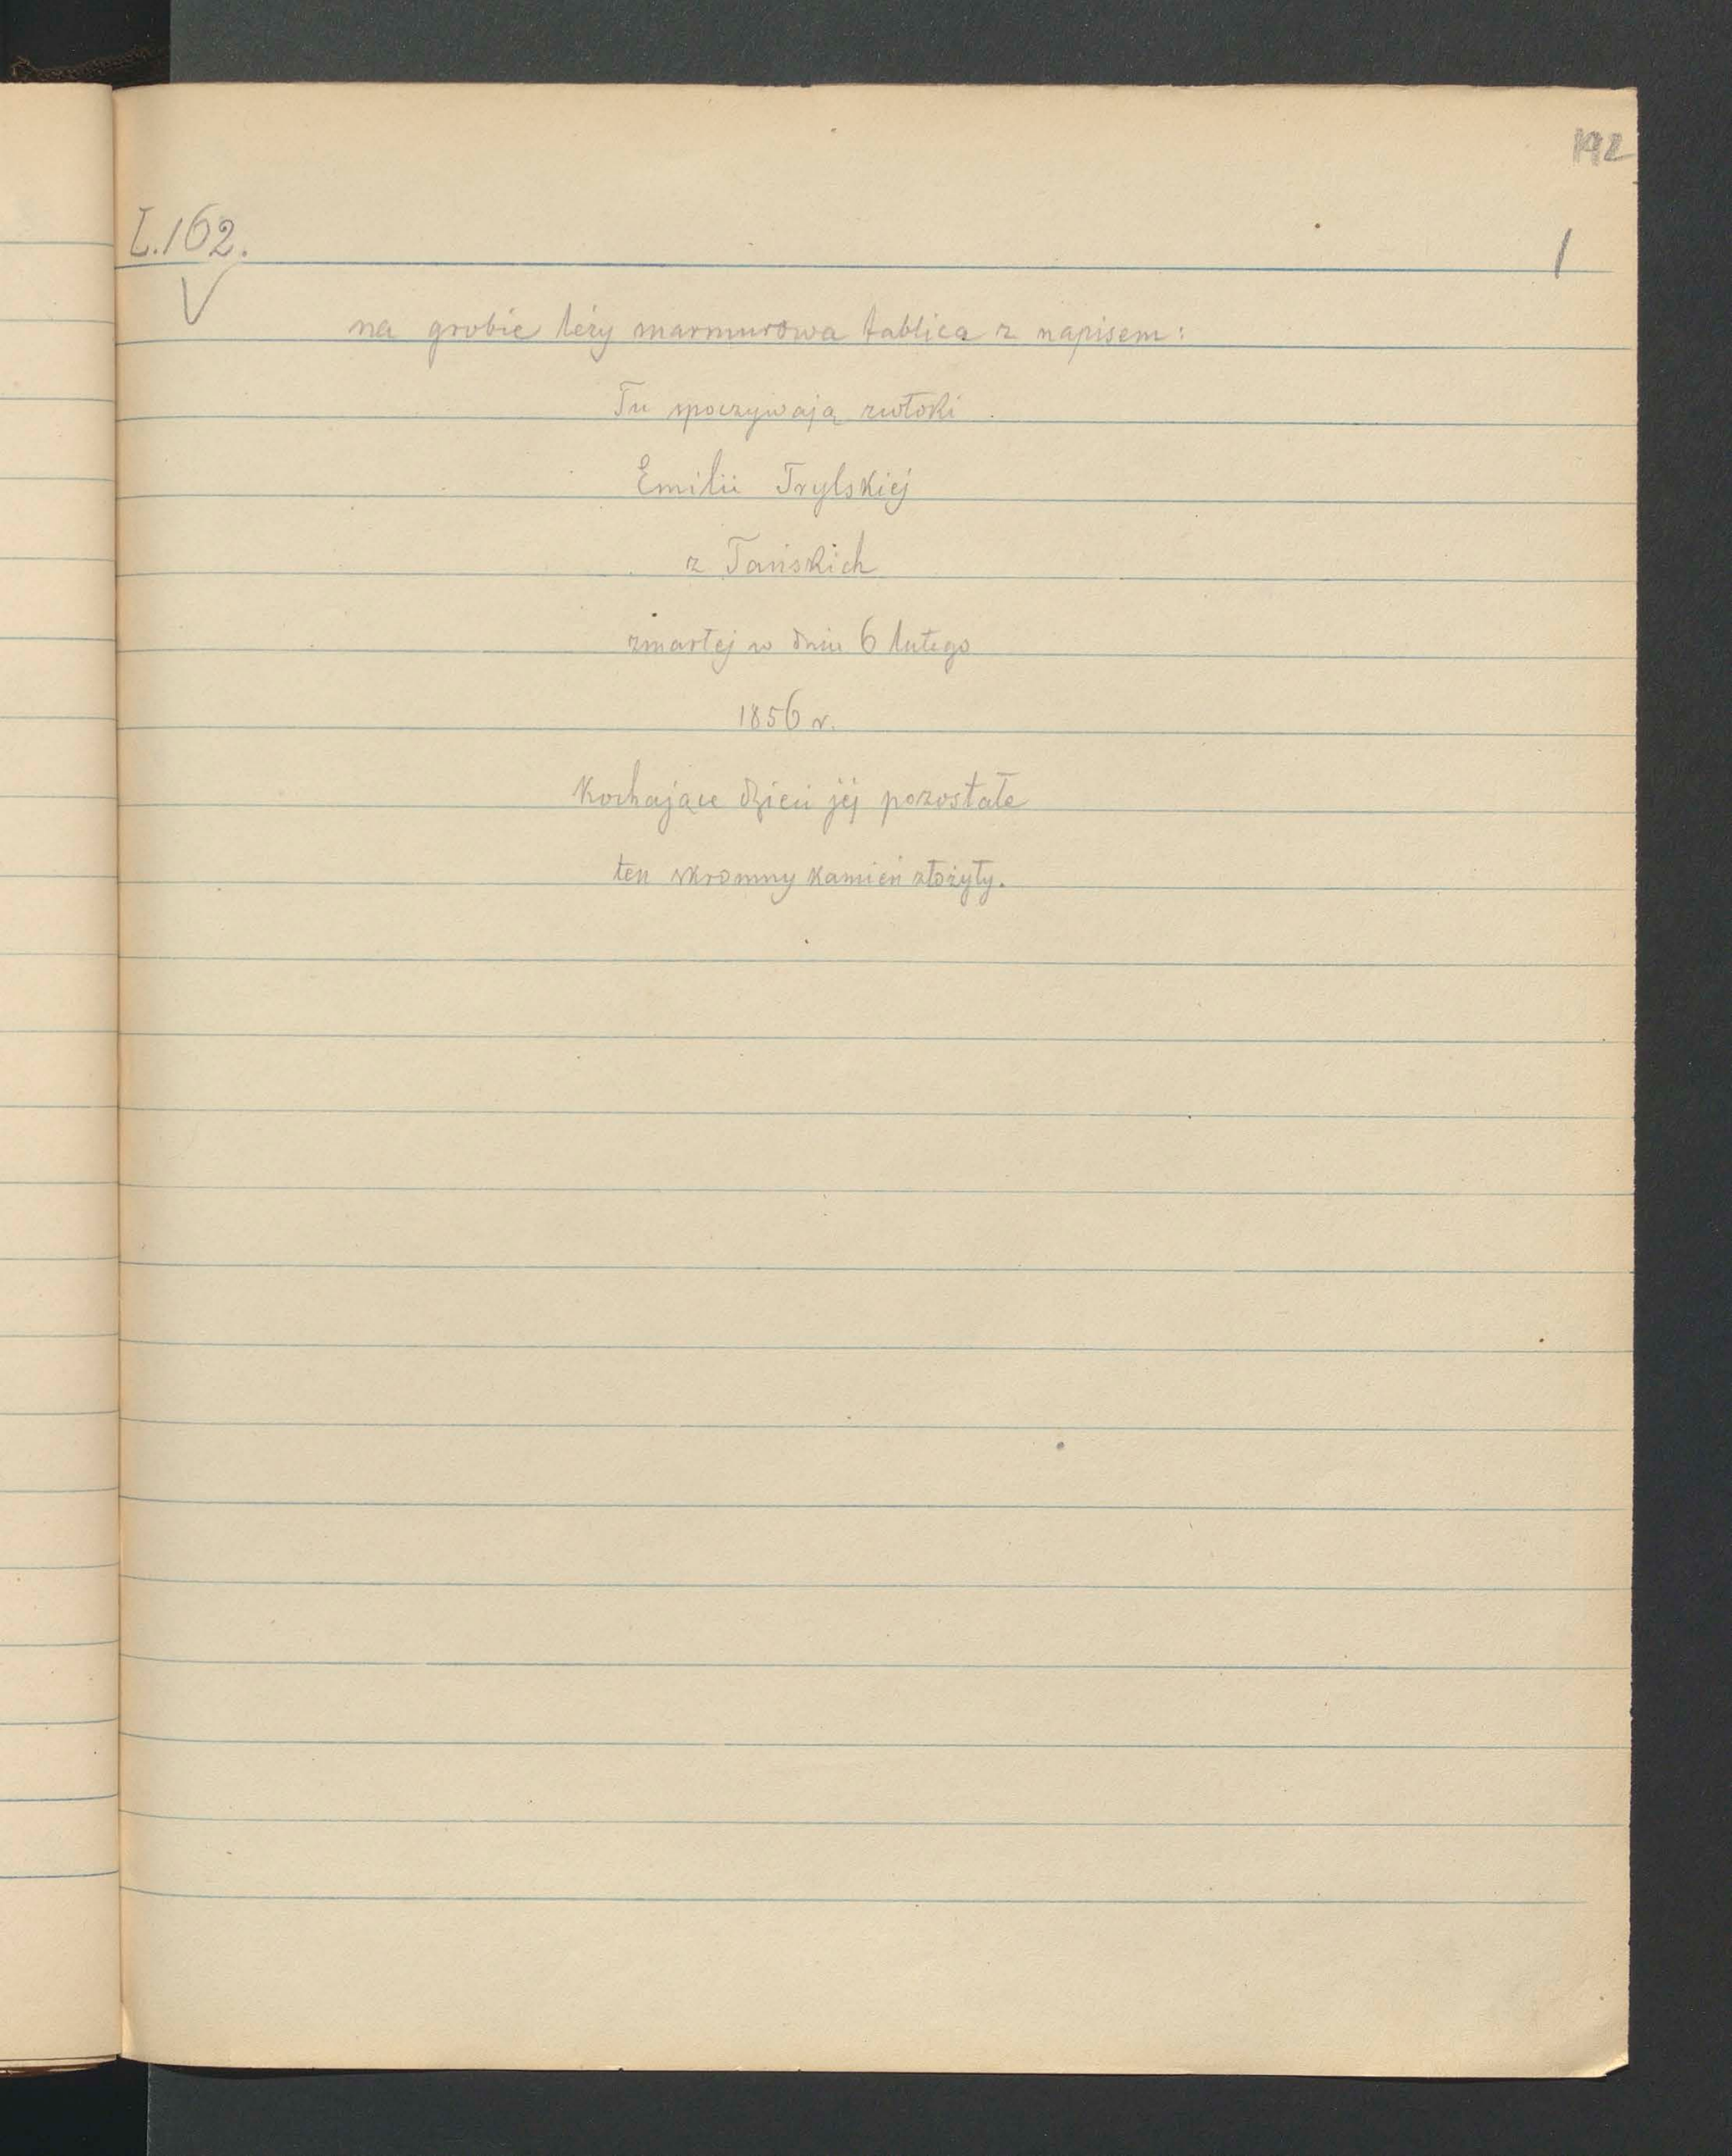 192
L.162.
1
V
na grobie leży marmurowa tablica z napisem:
Tu spoczywają zwłoki
Emilii Trylskiej
z Tańskich
zmarłej w dniu 6 lutego
1856 r.
Kochające dzieci jej pozostałe
ten skromny kamień złożyły.